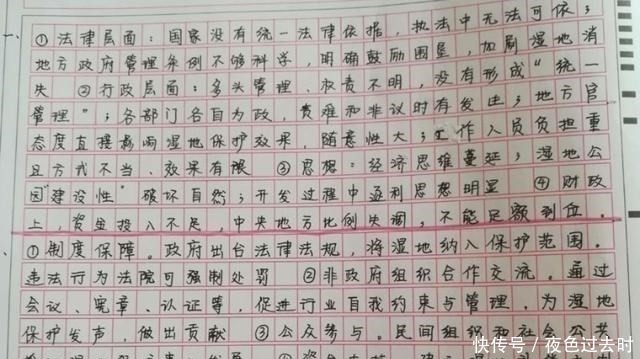 一、
①法律层面:国家没有统一法律依据,执法中无法可依;
地方政府管理条例不够科学,明确鼓励围垦,加剧湿地消
失 ②行政层面:多头管理、权责不明,没有形成“统一
管理”;各部门各自为政,责难和非议时有发生;地方官
态度直接影响湿地保护效果,随意性大;工作人员负担重
且方式不当、效果有限 ③思想:经济思维蔓延;湿地公
园“建设性”破坏自然;开发过程中逐利思想明显 ④财政
上,资金投入不足,中央地方比例失调,不能足额到位。
①制度保障。政府出台法律法规,将湿地纳入保护范围。
违法行为法院可强制处罚 ②非政府组织合作交流。通过
会议、宪章、认证等,促进行业自我约束与管理,为湿地
保护发声,做出贡献 ③公众参与。民间组织和社会公共
快传号/夜色过去时